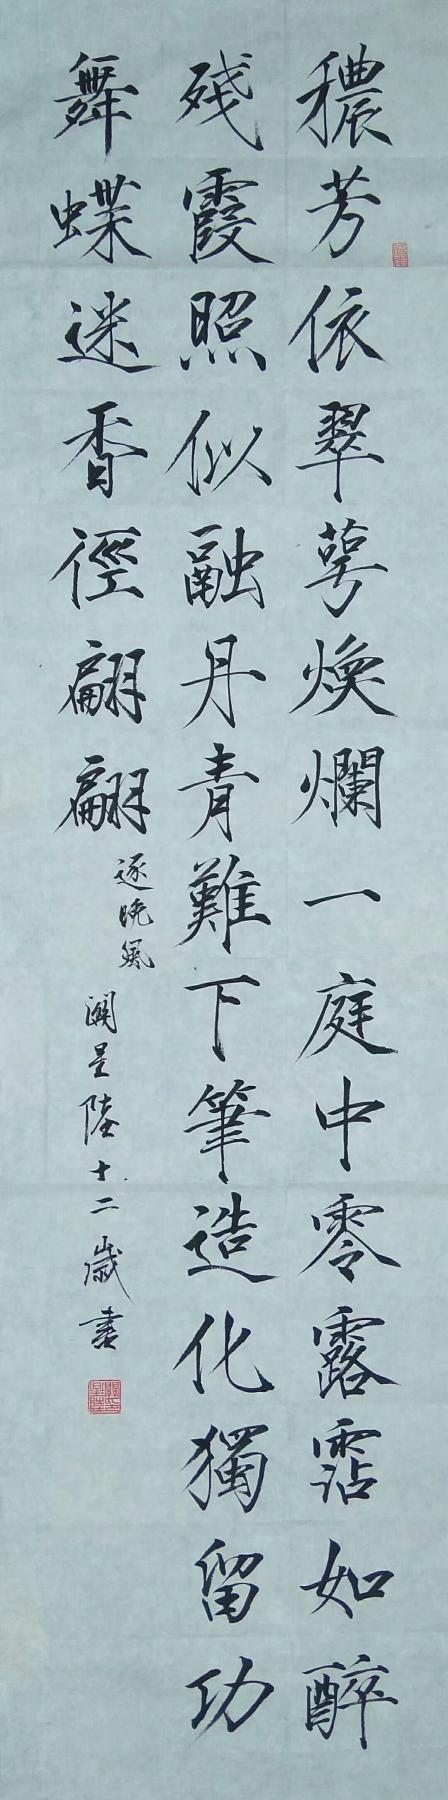 穠芳依翠萼煥爛一庭中零露霑如醉
残霞照似融丹青難下筆造化獨留功
舞蝶迷香徑翩翩
逐晚風
關星陸十二歲書